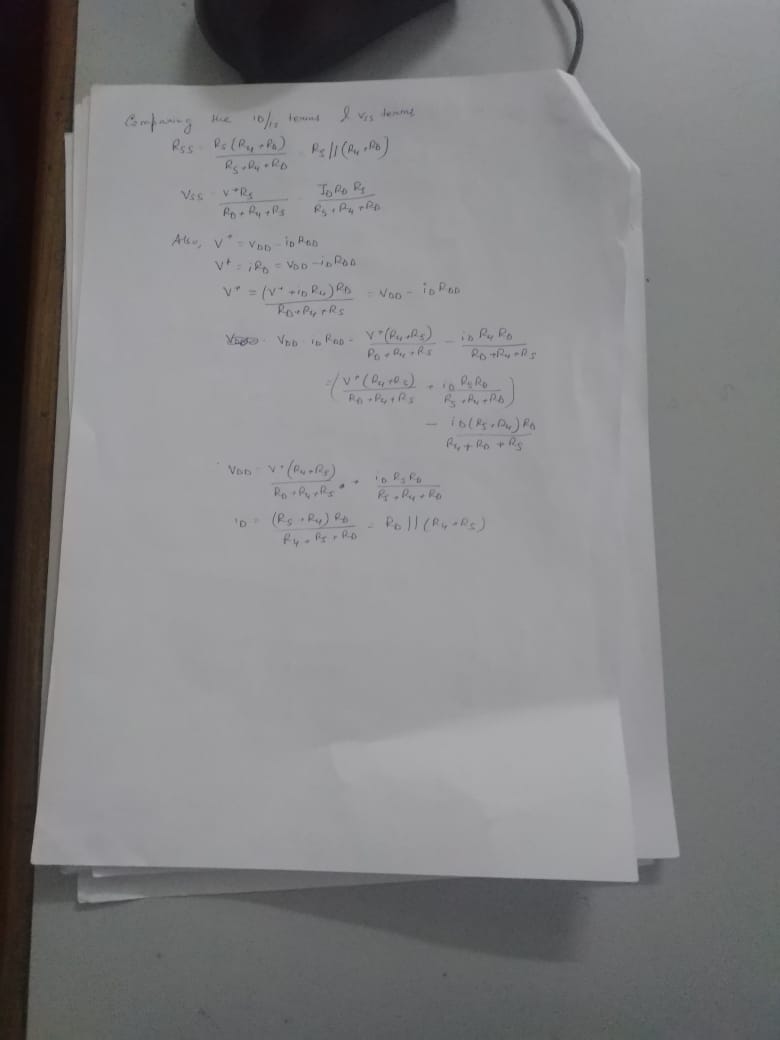 Comparing the iD/is terms & vss terms
RSS = RS(R4+RD)/(RS+R4+RD) = RS||(R4+RD)
VSS = V+RS/(RD+R4+RS) - IDRD RS/(RS+R4+RD)
Also, V+ = VDD - iDRDD
V+ - iRD = VDD - iDRDD
V+ = (V+ + iDR4)RD/(RD+R4+RS) = VDD - iDRDD
VDD - iDRDD = V+(R4+RS)/(RD+R4+RS) - iDR4RD/(RD+R4+RS)
= (V+(R4+RS)/(RD+R4+RS) + iDRSRD/(RS+R4+RD))
- iD(RS+R4)RD/(R4+RD+RS)
VDD = V+(R4+RS)/(RD+R4+RS) + iDRSRD/(RS+R4+RD)
iD = (RS+R4)RD/(R4+RS+RD) = RD||(R4+RS)